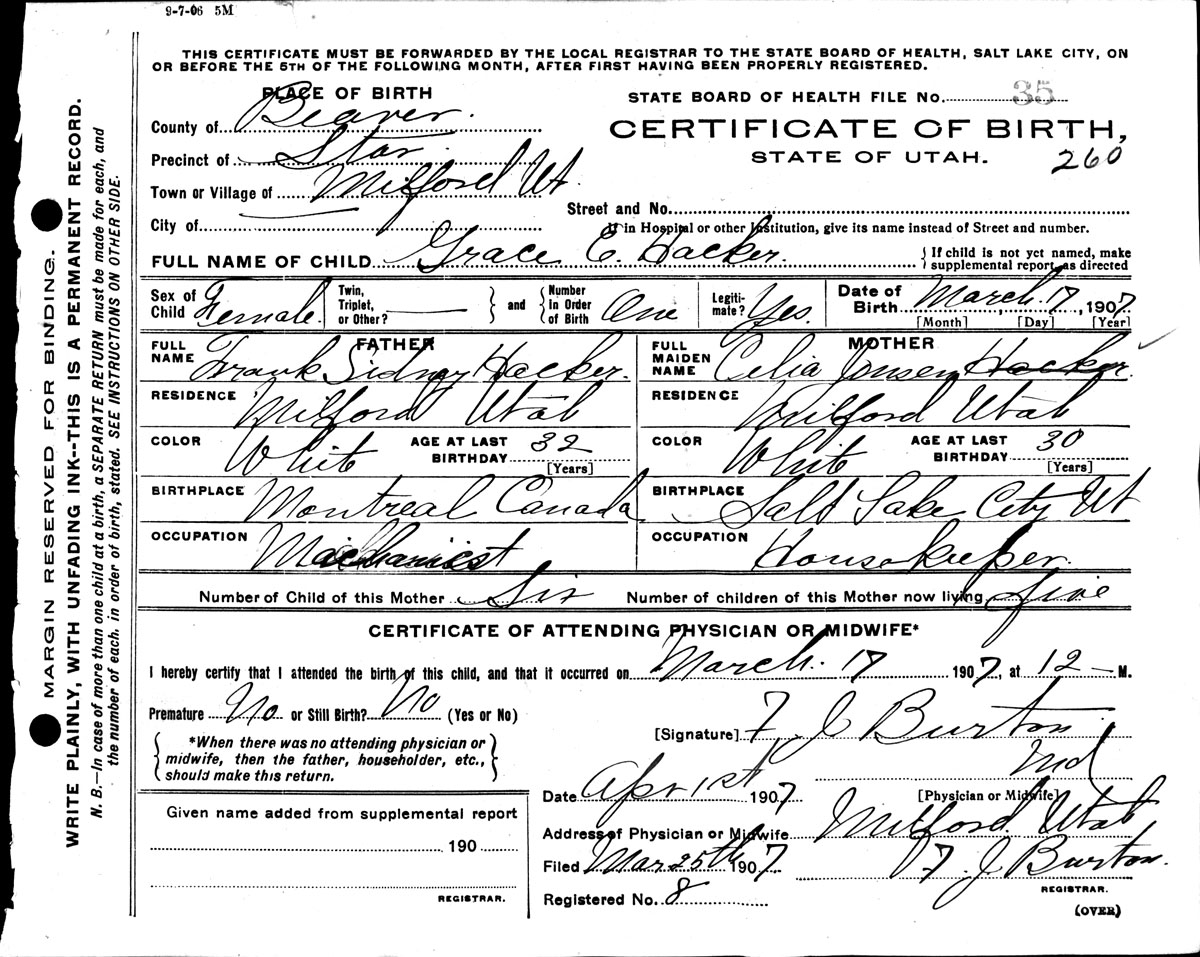 9-7-06 5M
THIS CERTIFICATE MUST BE FORWARDED BY THE LOCAL REGISTRAR TO THE STATE BOARD OF HEALTH, SALT LAKE CITY, ON
OR BEFORE THE 5TH OF THE FOLLOWING MONTH, AFTER FIRST HAVING BEEN PROPERLY REGISTERED.
PLACE OF BIRTH
STATE BOARD OF HEALTH FILE No. 35
County of Beaver.
CERTIFICATE OF BIRTH,
Precinct of Star
STATE OF UTAH. 260
Town or Village of Milford Ut.
Street and No.
City of
If in Hospital or other Institution, give its name instead of Street and number.
FULL NAME OF CHILD Grace E. Hacker. { If child is not yet named, make
supplemental report as directed
Sex of Child Female. Twin, Triplet, or Other? — } and { Number In Order of Birth One Legiti-mate? Yes. Date of Birth March. 17, 1907
[Month] [Day] [Year]
FATHER MOTHER
FULL NAME Frank Sidney Hacker. FULL MAIDEN NAME Celia Jensen Hacker.
RESIDENCE Milford Utah RESIDENCE Milford Utah
COLOR White AGE AT LAST BIRTHDAY 32 [Years] COLOR White AGE AT LAST BIRTHDAY 30 [Years]
BIRTHPLACE Montreal Canada BIRTHPLACE Salt Lake City Ut
OCCUPATION OCCUPATION Housekeeper.
Number of Child of this Mother Six Number of children of this Mother now living five
CERTIFICATE OF ATTENDING PHYSICIAN OR MIDWIFE*
I hereby certify that I attended the birth of this child, and that it occurred on March. 17 1907, at 12 — M.
Premature No or Still Birth? No (Yes or No)
[Signature] F J Burton.
Md
[Physician or Midwife]
{ *When there was no attending physician or
midwife, then the father, householder, etc.,
should make this return. }
Date Apr 1st 1907
Address of Physician or Midwife Milford. Utah
Filed Mar 25th 1907 F. J Burton.
REGISTRAR.
Registered No. 8
(OVER)
Given name added from supplemental report
190
REGISTRAR.
MARGIN RESERVED FOR BINDING.
WRITE PLAINLY, WITH UNFADING INK--THIS IS A PERMANENT RECORD.
N. B.—In case of more than one child at a birth, a SEPARATE RETURN must be made for each, and
the number of each, in order of birth, stated. SEE INSTRUCTIONS ON OTHER SIDE.